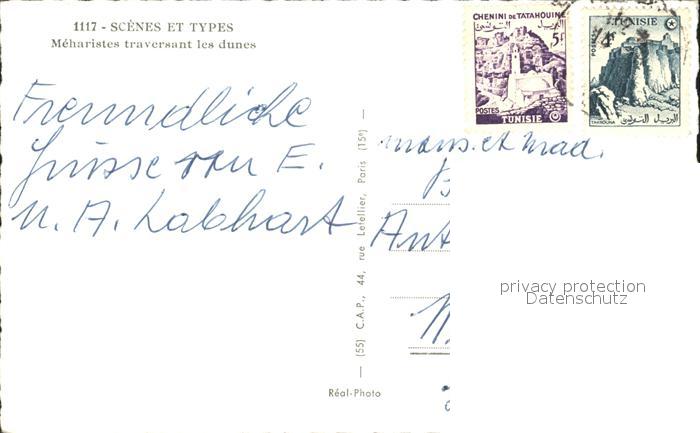 1117 - SCÈNES ET TYPES
Méharistes traversant les dunes
Freundliche
Grüsse von E.
u. A. Labhart
CHENINI DE TATAHOUINE
5F
POSTES
TUNISIE
TUNISIE
POSTES
TAKROUNA
mons. et mad.
B
Ant
(55) C.A.P., 44, rue Letellier, Paris (15e)
Réal-Photo
privacy protection
Datenschutz